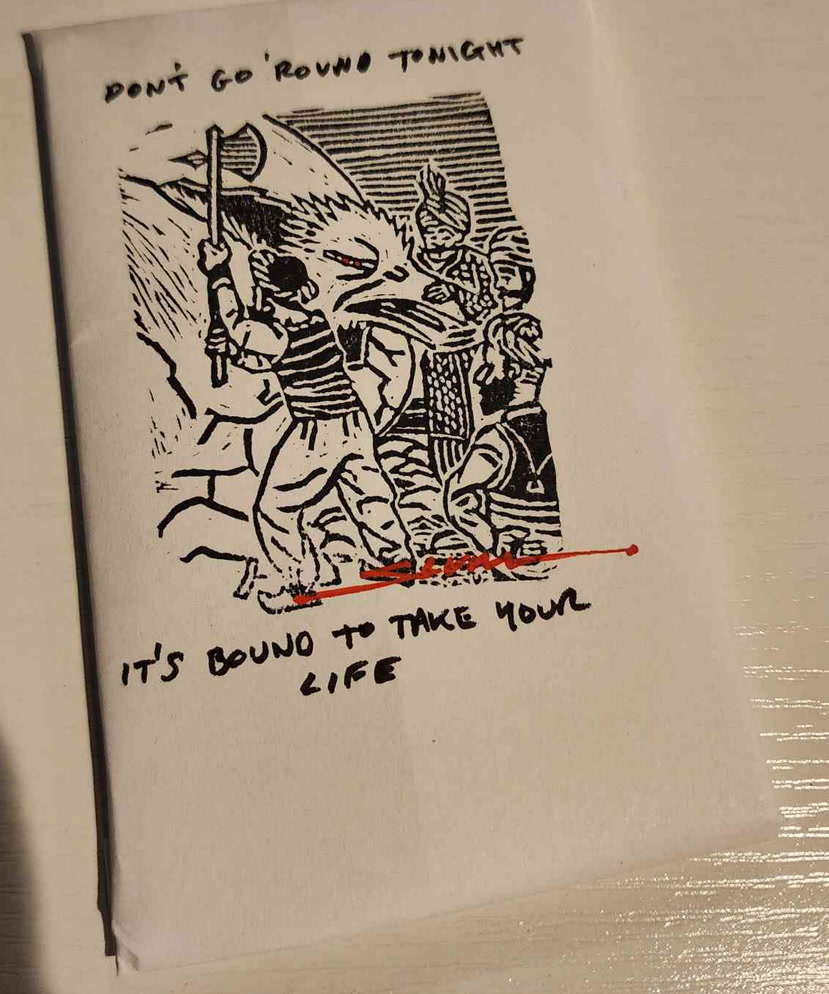 DON'T GO 'ROUND TONIGHT
IT'S BOUND TO TAKE YOUR
LIFE